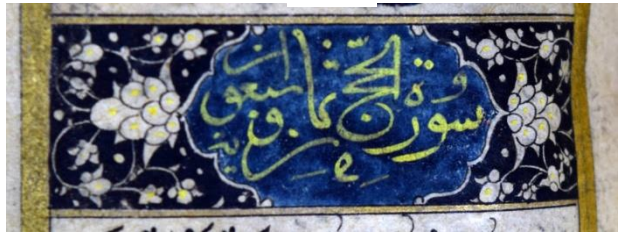 سورة الحج ثمان و سبعون اية